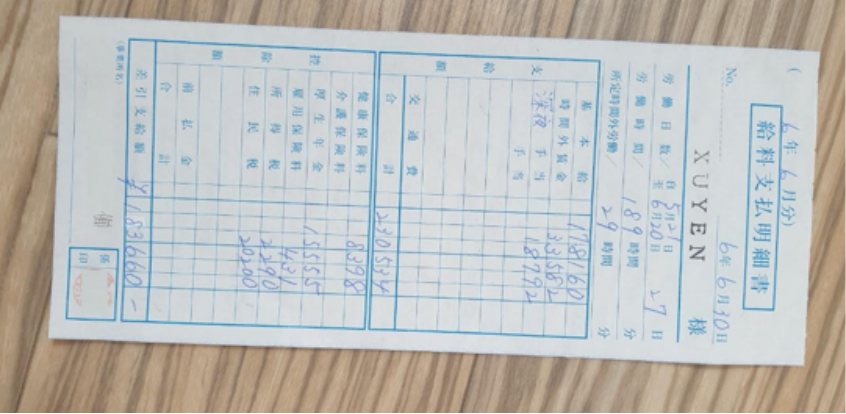 (6年6月分)
給料支払明細書
No. 6年6月30日
XUYEN 様
労働日数/自5月21日 至6月20日 27日
労働時間/ 189時間 分
所定時間外労働/ 29時間 分
支給額
基本給 178160
時間外賃金 33582
深夜手当 18792
手当
交通費
合計 230534
控除額
健康保険料 8398
介護保険料
厚生年金 15555
雇用保険料 431
所得税 2290
住民税 20200
前払金
合計
差引支給額 ¥183660-
(事業所名)
係印